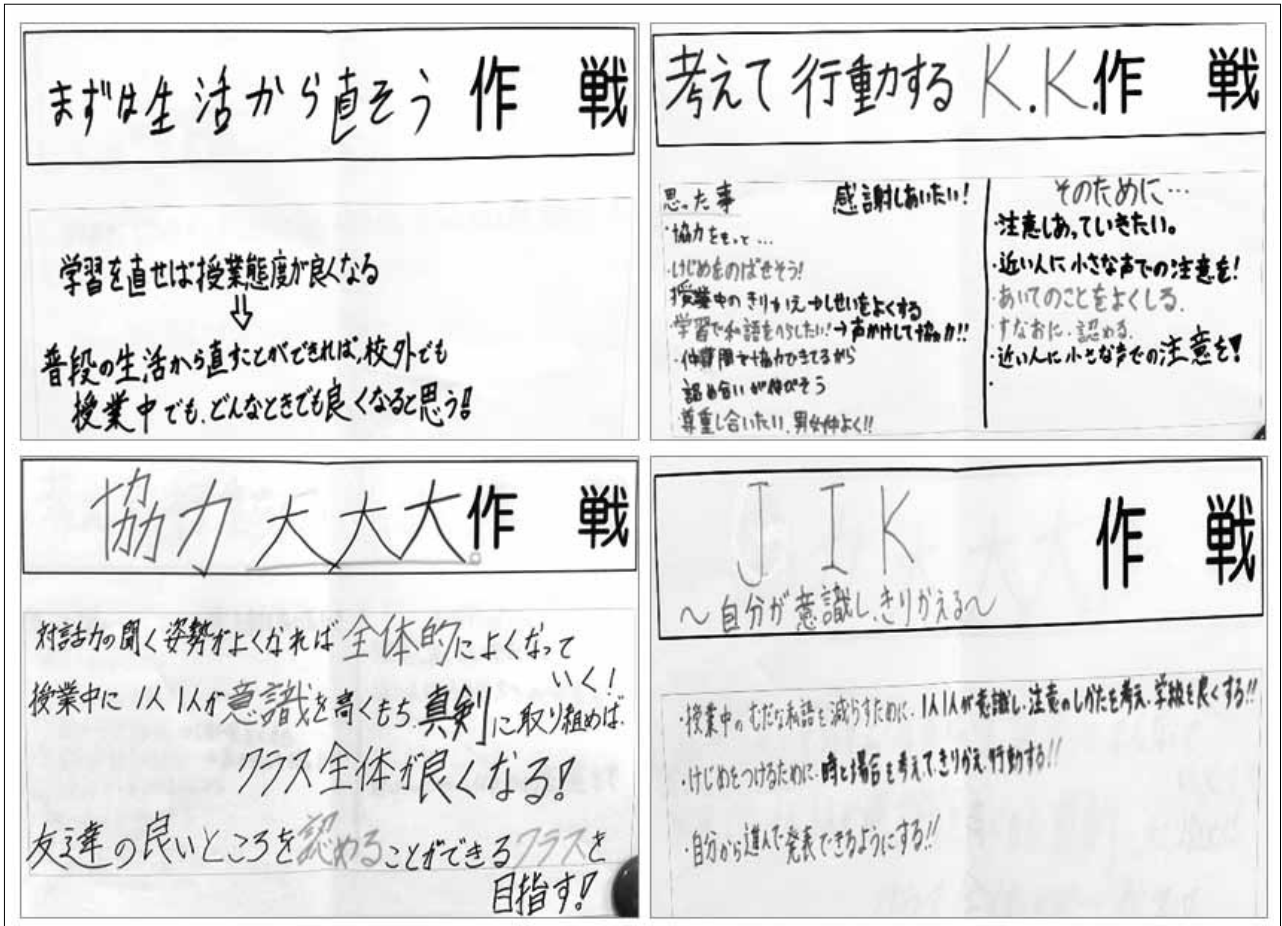 まずは生活から直そう 作 戦
学習を直せば授業態度が良くなる
⇓
普段の生活から直すことができれば、校外でも
授業中でも、どんなときでも良くなると思う!!
考えて行動する K.K.作 戦
思った事 感謝しあいたい!
・協力をもっと…
・けじめをのばせそう!
授業中のきりかえ しせいをよくする
・学習で私語をへらしたい!→声かけして協力!!
・仲間間で協力できてるから
認め合いが伸びそう
尊重し合いたい、男女仲よく!!
そのために…
・注意しあっていきたい。
・近い人に小さな声での注意を!
・あいてのことをよくしる。
・すなおに、認める。
・近い人に小さな声での注意を!
・
協力大大大作 戦
対話力の聞く姿勢がよくなれば全体的によくなって
いく!
授業中に1人1人が意識を高くもち、真剣に取り組めば、
クラス全体が良くなる!
友達の良いところを認めることができるクラスを
目指す!
J I K 作 戦
〜自分が意識し、きりかえる〜
・授業中のむだな私語を減らすために、1人1人が意識し、注意のしかたを考え、学校を良くする!!
・けじめをつけるために、時と場合を考えて、きりかえ、行動する!!
・自分から進んで発表できるようにする!!